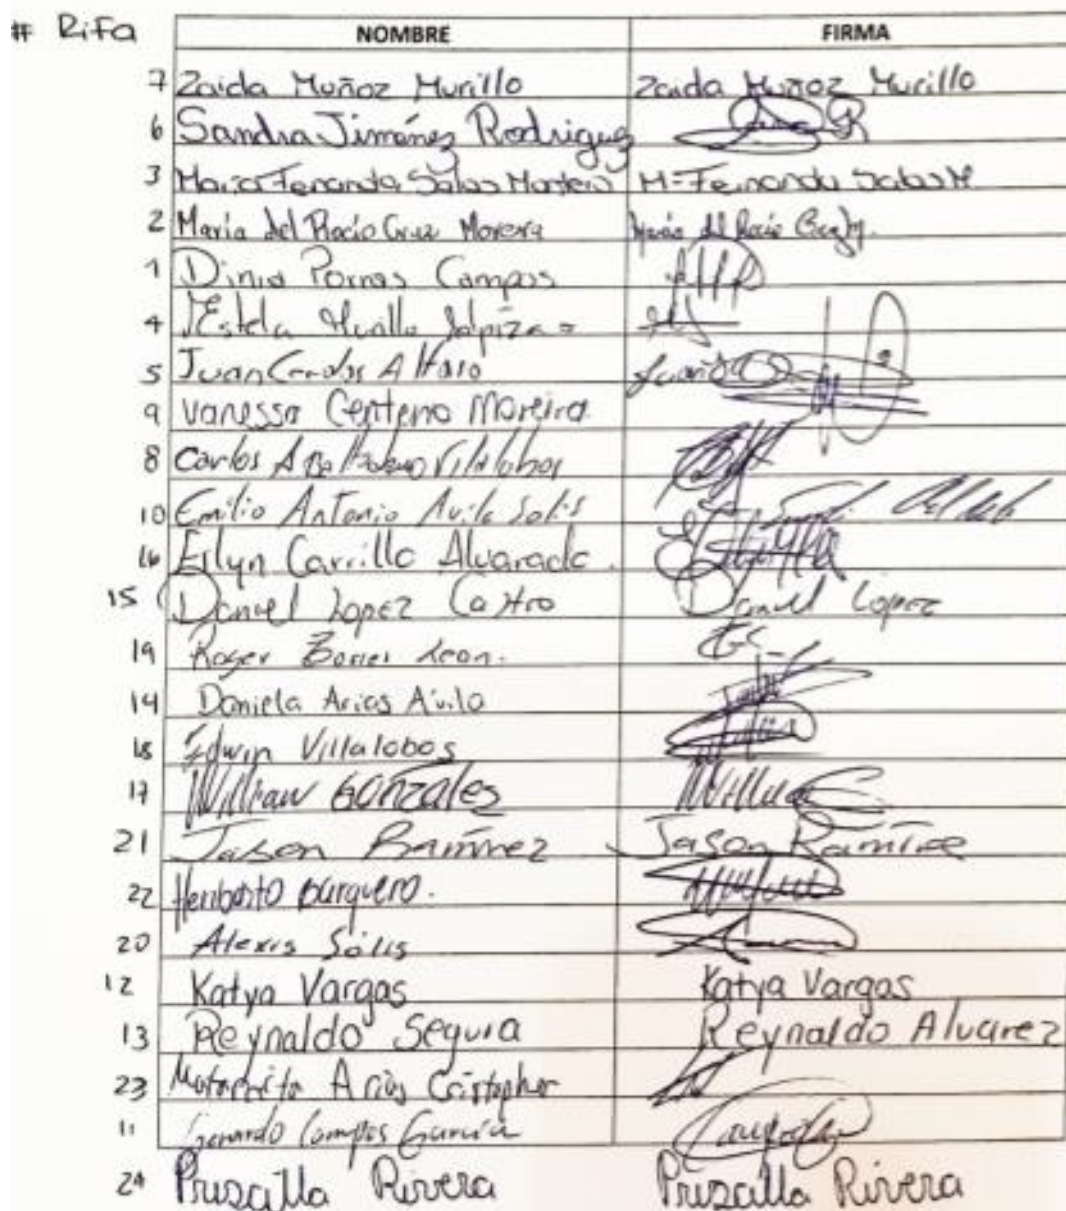 # Rifa NOMBRE FIRMA
7 Zaida Muñoz Murillo Zaida Muñoz Murillo
6 Sandra Jiménez Rodriguez
3 Maria Fernanda Salas Montero M- Fernanda Salas M
2 Maria del Rocio Cruz Morera Maria del Rocio Cruz M.
1 Dinia Porras Campos
4 Estela Murillo
5 Juan Carlos Alfaro
9 Vanessa Centeno Moreira
8 Carlos Villalobos
10 Emilio Antonio Avila Solis
16 Eilyn Carrillo Alvarado
15 Daniel Lopez Castro Daniel Lopez
19 Roger Leon.
14 Daniela Arias Avila
18 Edwin Villalobos
17 William Gonzales
21 Jason Ramirez Jason Ramirez
22 Heriberto Barquero.
20 Alexis Sólis
12 Katya Vargas Katya Vargas
13 Reynaldo Segura Reynaldo Alvarez
23 Arias Cristopher
11 Gerardo Campos Garcia
24 Priscilla Rivera Priscilla Rivera